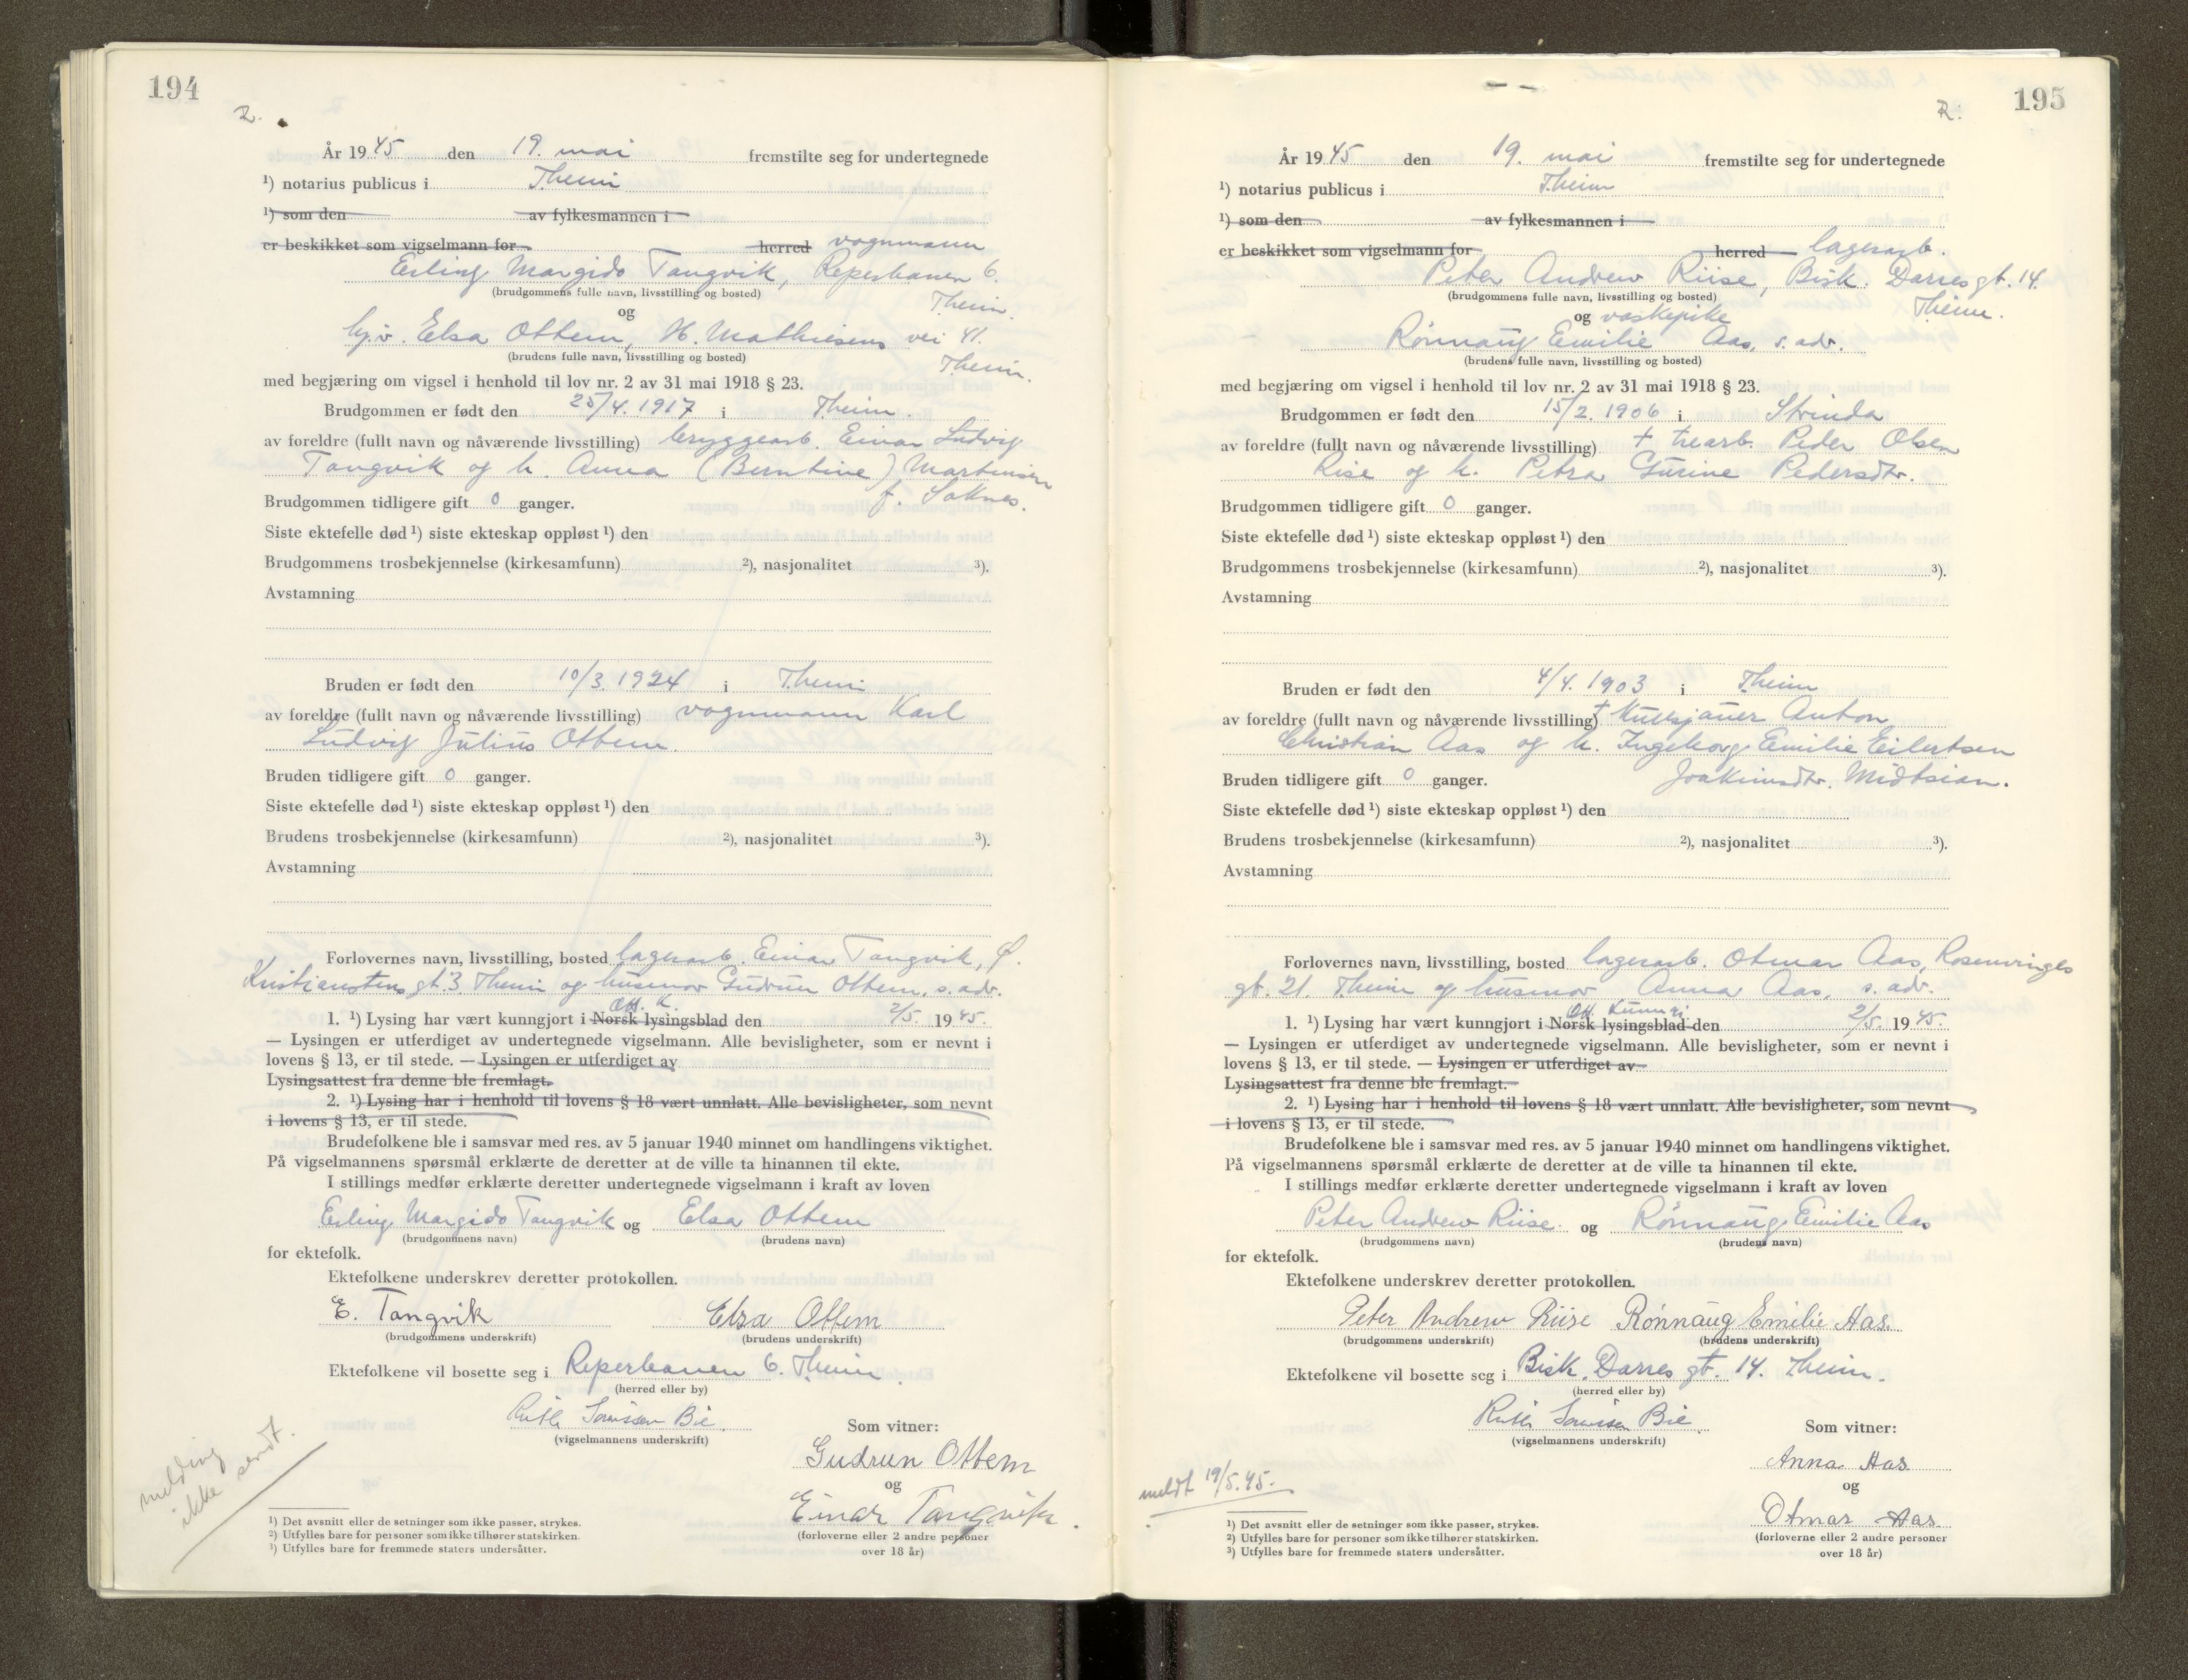 194
R.
År 19 45 den 19. mai fremstilte seg for undertegnede
¹) notarius publicus i Theim
¹) som den av fylkesmannen i
er beskikket som vigselmann for herred vognmann
Erling Margido Tangvik, Reperbanen 6.
(brudgommens fulle navn, livsstilling og bosted) Theim.
og
hj.v. Elsa Ottem, H. Mathiesens vei 41.
(brudens fulle navn, livsstilling og bosted) Theim.
med begjæring om vigsel i henhold til lov nr. 2 av 31 mai 1918 § 23.
Brudgommen er født den 25/4. 1917 i Theim.
av foreldre (fullt navn og nåværende livsstilling) bryggearb. Einar Ludvig
Tangvik og h. Anna (Berntine) Martinsen
f. Saknes.
Brudgommen tidligere gift 0 ganger.
Siste ektefelle død ¹) siste ekteskap oppløst ¹) den
Brudgommens trosbekjennelse (kirkesamfunn) ²), nasjonalitet ³).
Avstamning
Bruden er født den 10/3. 1924 i Theim
av foreldre (fullt navn og nåværende livsstilling) vognmann Karl
Ludvig Julius Ottem.
Bruden tidligere gift 0 ganger.
Siste ektefelle død ¹) siste ekteskap oppløst ¹) den
Brudens trosbekjennelse (kirkesamfunn) ²), nasjonalitet ³).
Avstamning
Forlovernes navn, livsstilling, bosted lagerarb. Einar Tangvik, Ø.
Kristianstens gt. 3. Theim og husmor Gudrun Ottem, s. adr.
Off. K.
1. ¹) Lysing har vært kunngjort i Norsk lysingsblad den 2/5. 19 45.
— Lysingen er utferdiget av undertegnede vigselmann. Alle bevisligheter, som er nevnt i
lovens § 13, er til stede. — Lysingen er utferdiget av
Lysingsattest fra denne ble fremlagt.
2. ¹) Lysing har i henhold til lovens § 18 vært unnlatt. Alle bevisligheter, som nevnt
i lovens § 13, er til stede.
Brudefolkene ble i samsvar med res. av 5 januar 1940 minnet om handlingens viktighet.
På vigselmannens spørsmål erklærte de deretter at de ville ta hinannen til ekte.
I stillings medfør erklærte deretter undertegnede vigselmann i kraft av loven
Erling Margido Tangvik og Elsa Ottem
(brudgommens navn) (brudens navn)
for ektefolk.
Ektefolkene underskrev deretter protokollen.
E. Tangvik Elsa Ottem
(brudgommens underskrift) (brudens underskrift)
Ektefolkene vil bosette seg i Reperbanen 6. Theim.
(herred eller by)
Ruth Bie Som vitner:
(vigselmannens underskrift)
Gudrun Ottem
og
Einar Tangvik.
(forloverne eller 2 andre personer
over 18 år)
melding
ikke sendt.
¹) Det avsnitt eller de setninger som ikke passer, strykes.
²) Utfylles bare for personer som ikke tilhører statskirken.
³) Utfylles bare for fremmede staters undersåtter.
195
R.
År 19 45 den 19. mai fremstilte seg for undertegnede
¹) notarius publicus i Theim
¹) som den av fylkesmannen i
er beskikket som vigselmann for herred lagerarb.
Peter Andrew Riise, Bisk. Darres gt. 14.
(brudgommens fulle navn, livsstilling og bosted) Theim.
og vaskepike
Rønnaug Emilie Aas, s. adr.
(brudens fulle navn, livsstilling og bosted)
med begjæring om vigsel i henhold til lov nr. 2 av 31 mai 1918 § 23.
Brudgommen er født den 15/2. 1906 i Strinda
av foreldre (fullt navn og nåværende livsstilling) + trearb. Peder Olsen
Rise og h. Petra Gurine Pedersdtr.
Brudgommen tidligere gift 0 ganger.
Siste ektefelle død ¹) siste ekteskap oppløst ¹) den
Brudgommens trosbekjennelse (kirkesamfunn) ²), nasjonalitet ³).
Avstamning
Bruden er født den 4/4. 1903 i Theim
av foreldre (fullt navn og nåværende livsstilling) + kullsjauer Anton
Christian Aas og h. Ingeborg Emilie Eilertsen
Joakimsdtr. Midtsian.
Bruden tidligere gift 0 ganger.
Siste ektefelle død ¹) siste ekteskap oppløst ¹) den
Brudens trosbekjennelse (kirkesamfunn) ²), nasjonalitet ³).
Avstamning
Forlovernes navn, livsstilling, bosted lagerarb. Otmar Aas, Rosenvinges
gt. 21. Theim og husmor Anna Aas, s. adr.
Off. Kunngj.
1. ¹) Lysing har vært kunngjort i Norsk lysingsblad den 2/5. 19 45.
— Lysingen er utferdiget av undertegnede vigselmann. Alle bevisligheter, som er nevnt i
lovens § 13, er til stede. — Lysingen er utferdiget av
Lysingsattest fra denne ble fremlagt.
2. ¹) Lysing har i henhold til lovens § 18 vært unnlatt. Alle bevisligheter, som nevnt
i lovens § 13, er til stede.
Brudefolkene ble i samsvar med res. av 5 januar 1940 minnet om handlingens viktighet.
På vigselmannens spørsmål erklærte de deretter at de ville ta hinannen til ekte.
I stillings medfør erklærte deretter undertegnede vigselmann i kraft av loven
Peter Andrew Riise og Rønnaug Emilie Aas
(brudgommens navn) (brudens navn)
for ektefolk.
Ektefolkene underskrev deretter protokollen.
Peter Andrew Riise Rønnaug Emilie Aas.
(brudgommens underskrift) (brudens underskrift)
Ektefolkene vil bosette seg i Bisk. Darres gt. 14. Theim.
(herred eller by)
Ruth Bie Som vitner:
(vigselmannens underskrift)
Anna Aas
og
Otmar Aas.
(forloverne eller 2 andre personer
over 18 år)
meldt 19/5.45.
¹) Det avsnitt eller de setninger som ikke passer, strykes.
²) Utfylles bare for personer som ikke tilhører statskirken.
³) Utfylles bare for fremmede staters undersåtter.